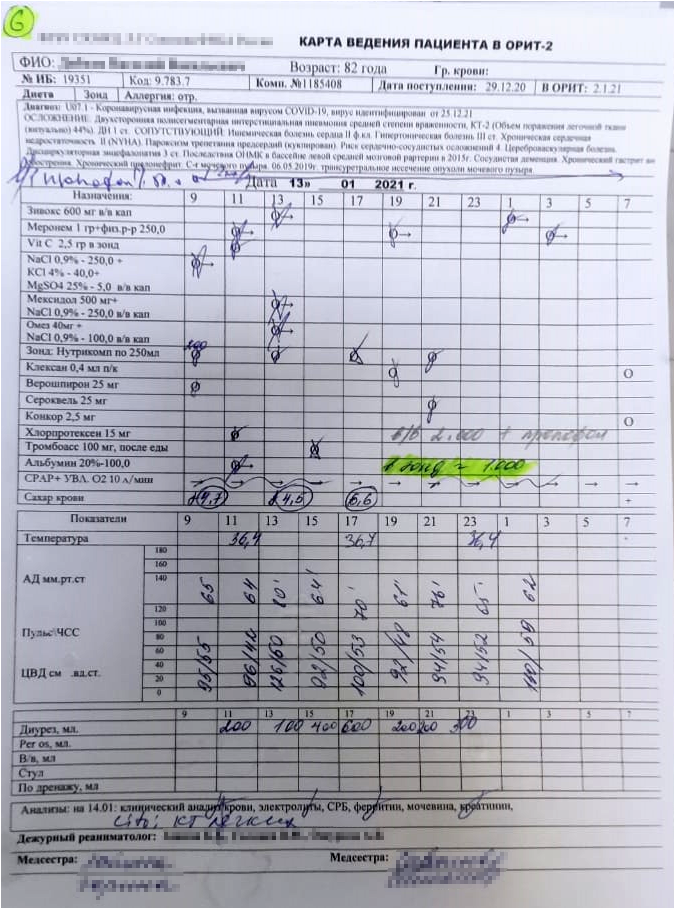 6
КАРТА ВЕДЕНИЯ ПАЦИЕНТА В ОРИТ-2
ФИО: Возраст: 82 года Гр. крови:
№ ИБ: 19351 Код: 9.783.7 Комп. №1185408 Дата поступления: 29.12.20 В ОРИТ: 2.1.21
Диета Зонд Аллергия: отр.
Диагноз: U07.1 - Коронавирусная инфекция, вызванная вирусом COVID-19, вирус идентифицирован от 25.12.21
ОСЛОЖНЕНИЕ. Двухсторонняя полисегментарная интерстициальная пневмония средней степени выраженности, КТ-2 (Объем поражения легочной ткани
(визуально) 44%). ДН 1 ст. СОПУТСТВУЮЩИЙ: Ишемическая болезнь сердца II ф.кл. Гипертоническая болезнь III ст. Хроническая сердечная
недостаточность II (NYHA). Пароксизм трепетания предсердий (купирован). Риск сердечно-сосудистых осложнений 4. Цереброваскулярная болезнь.
Дисциркуляторная энцефалопатия 3 ст. Последствия ОНМК в бассейне левой средней мозговой артерии в 2015г. Сосудистая деменция. Хронический гастрит
обострения. Хронический пиелонефрит. С-r мочевого пузыря. 06.05.2019г. трансуретральное иссечение опухоли мочевого пузыря.
Дата 13» 01 2021 г.
Назначения: 9 11 13 15 17 19 21 23 1 3 5 7
Зивокс 600 мг в/в кап
Меронем 1 гр+физ.р-р 250,0
Vit C 2,5 гр в зонд
NaCl 0,9% - 250,0 +
KCl 4% - 40,0+
MgSO4 25% - 5,0 в/в кап
Мексидол 500 мг+
NaCl 0,9% - 250,0 в/в кап
Омез 40мг +
NaCl 0,9% - 100,0 в/в кап
Зонд: Нутрикомп по 250мл 200
Клексан 0,4 мл п/к
Верошпирон 25 мг
Сероквель 25 мг
Конкор 2,5 мг
Хлорпротексен 15 мг в/в 2.000 + пропофол
Тромбоасс 100 мг, после еды
Альбумин 20%-100,0 в зонд ~ 1.000
СРАР+ УВЛ. О2 10 л/мин
Сахар крови 4,7 4,5 6,6
Показатели 9 11 13 15 17 19 21 23 1 3 5 7
Температура 36,4 36,7 36,4
180
160
АД мм.рт.ст 140
65 64 80 64 70 61 76 65 62
120
100
Пульс\ЧСС 80
60
ЦВД см .вд.ст. 40
95/55 96/42 126/60 92/50 100/53 92/48 94/54 94/52
20
0
9 11 13 15 17 19 21 23 1 3 5 7
Диурез, мл. 200 100 400 600 200 200 300
Per os, мл.
В/в, мл
Стул
По дренажу, мл
Анализы: на 14.01: клинический анализ крови, электролиты, СРБ, ферритин, мочевина, креатинин,
cito: КТ легких
Дежурный реаниматолог:
Медсестра: Медсестра: